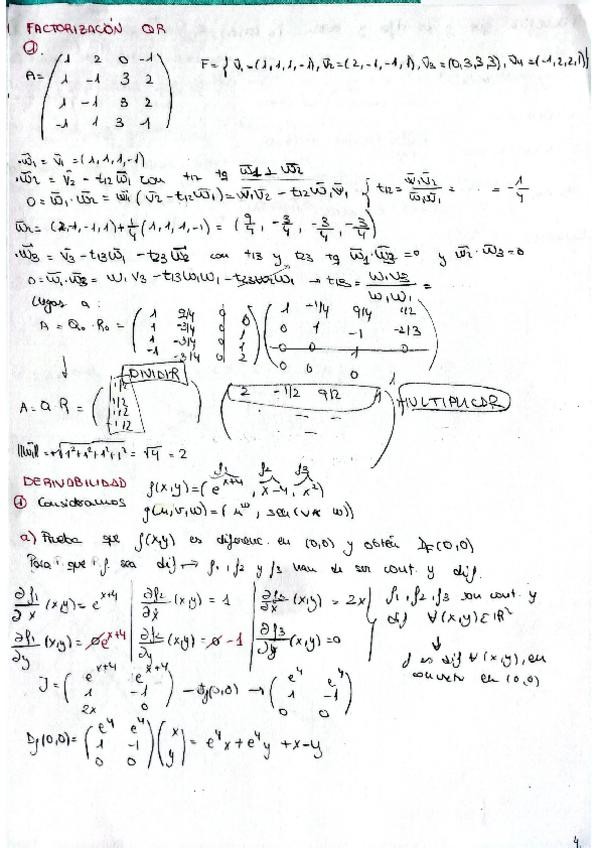 FACTORIZACIÓN QR
①.
A = ( 1 2 0 -1
1 -1 3 2
1 -1 3 2
-1 1 3 1 )
F = { v̄₁ = (1,1,1,-1), v̄₂ = (2,-1,-1,1), v̄₃ = (0,3,3,3), v̄₄ = (-1,2,2,1) }
· w̄₁ = v̄₁ = (1,1,1,-1)
· w̄₂ = v̄₂ - t₁₂ w̄₁ con t₁₂ tq w̄₁ ⊥ w̄₂
0 = w̄₁ · w̄₂ = w̄₁ (v̄₂ - t₁₂ w̄₁) = w̄₁ v̄₂ - t₁₂ w̄₁ v̄₁ { t₁₂ = w̄₁v̄₂ / w̄₁w̄₁ = ... = -1/4
w̄₂ = (2,-1,-1,1) + 1/4 (1,1,1,-1) = (9/4, -3/4, -3/4, -3/4)
· w̄₃ = v̄₃ - t₁₃ w̄₁ - t₂₃ w̄₂ con t₁₃ y t₂₃ tq w̄₁ · w̄₃ = 0 y w̄₂ · w̄₃ = 0
0 = w̄₁ · w̄₃ = w₁ v₃ - t₁₃ w₁w₁ - t₂₃ w₂ w₁ → t₁₃ = w₁v₃ / w₁w₁ =
llegas a:
A = Q₀ · R₀ = ( 1 9/4 0 0
1 -3/4 0 1
1 -3/4 0 1
-1 -3/4 0 2 )
( 1 -1/4 9/4
0 1 -1 -2/3
0 0 1 0
0 0 0 1 )
↓ DIVIDIR
A = Q · R = ( 1/2
1/2
1/2
-1/2 )
( 2 -1/2 9/2 ) MULTIPLICAR
||w̄₁|| = +√1²+1²+1²+1² = √4 = 2
DERIVABILIDAD
① Consideramos f(x,y) = (e^{x+4}, x-4, x²) f₁ f₂ f₃
g(u,v,w) = (u^w, sen(v w))
a) Prueba que f(x,y) es diferenc. en (0,0) y obtén Df(0,0)
Para que f sea dif → f₁, f₂ y f₃ han de ser cont. y dif.
∂f₁/∂x (x,y) = e^{x+4} | ∂f₂/∂x (x,y) = 1 | ∂f₃/∂x (x,y) = 2x } f₁, f₂, f₃ son cont. y
∂f₁/∂y (x,y) = 0 e^{x+4} | ∂f₂/∂y (x,y) = 0 -1 | ∂f₃/∂y (x,y) = 0 dif ∀(x,y) ∈ ℝ²
↓
f es dif ∀(x,y), en
concreto en (0,0)
J = ( e^{x+4} e^{x+4}
1 -1
2x 0 ) → Jf(0,0) → ( e⁴ e⁴
1 -1
0 0 )
Df(0,0) = ( e⁴ e⁴
1 -1
0 0 ) ( x
y ) = e⁴x + e⁴y + x - y
4.